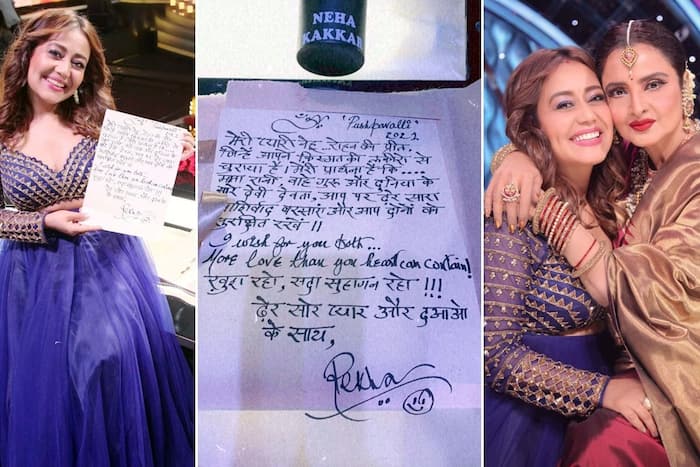 NEHA
KAKKAR
'Pushpavalli'
2021
मेरी प्यारी नेहु, रोहन की प्रीत,
जिन्हें आपने किस्मत की लकीरों से
चुराया है। मेरी प्रार्थना है कि....
माता रानी, वाहे गुरू और दुनिया के
सारे देवी देवता, आप पर ढेर सारा
आशिर्वाद बरसाए और आप दोनों को
सुरक्षित रखें।।
I wish for you both...
More love than you heart can contain!
खुश रहो, सदा सुहागन रहो !!!
ढेर सारे प्यार और दुआओं
के साथ,
Rekha